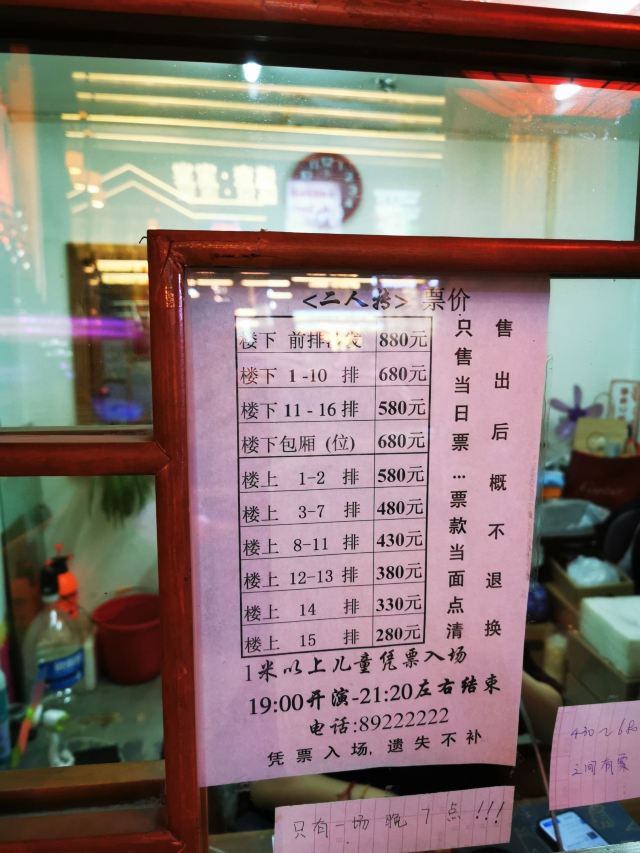 <二人转> 票价
楼下 前排沙发 880元
楼下 1-10 排 680元
楼下 11-16 排 580元
楼下包厢 (位) 680元
楼上 1-2 排 580元
楼上 3-7 排 480元
楼上 8-11 排 430元
楼上 12-13 排 380元
楼上 14 排 330元
楼上 15 排 280元
只售当日票…票款当面点清
售出后概不退换
1米以上儿童凭票入场
19:00开演-21:20左右结束
电话:89222222
凭票入场,遗失不补
只有一场 晚7点!!!
430~680
之间有票